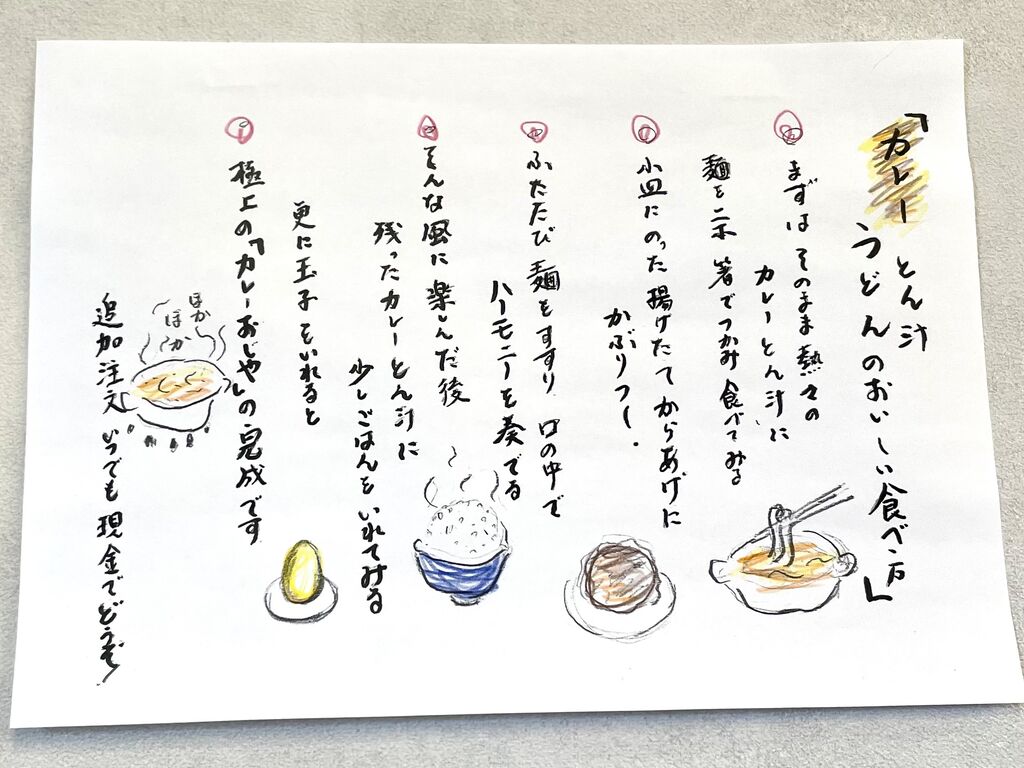 「カレーとん汁
うどんのおいしい食べ方」
まずは そのまま熱々の
カレーとん汁に
麺を二本 箸でつかみ食べてみる
小皿にのった揚げたてからあげに
かぶりつく。
ふたたび麺をすすり 口の中で
ハーモニーを奏でる
そんな風に楽しんだ後
残ったカレーとん汁に
少しごはんをいれてみる
更に玉子をいれると
極上の「カレーおじや」の完成です
ほか
ほか
追加注文 いつでも現金でどうぞ!